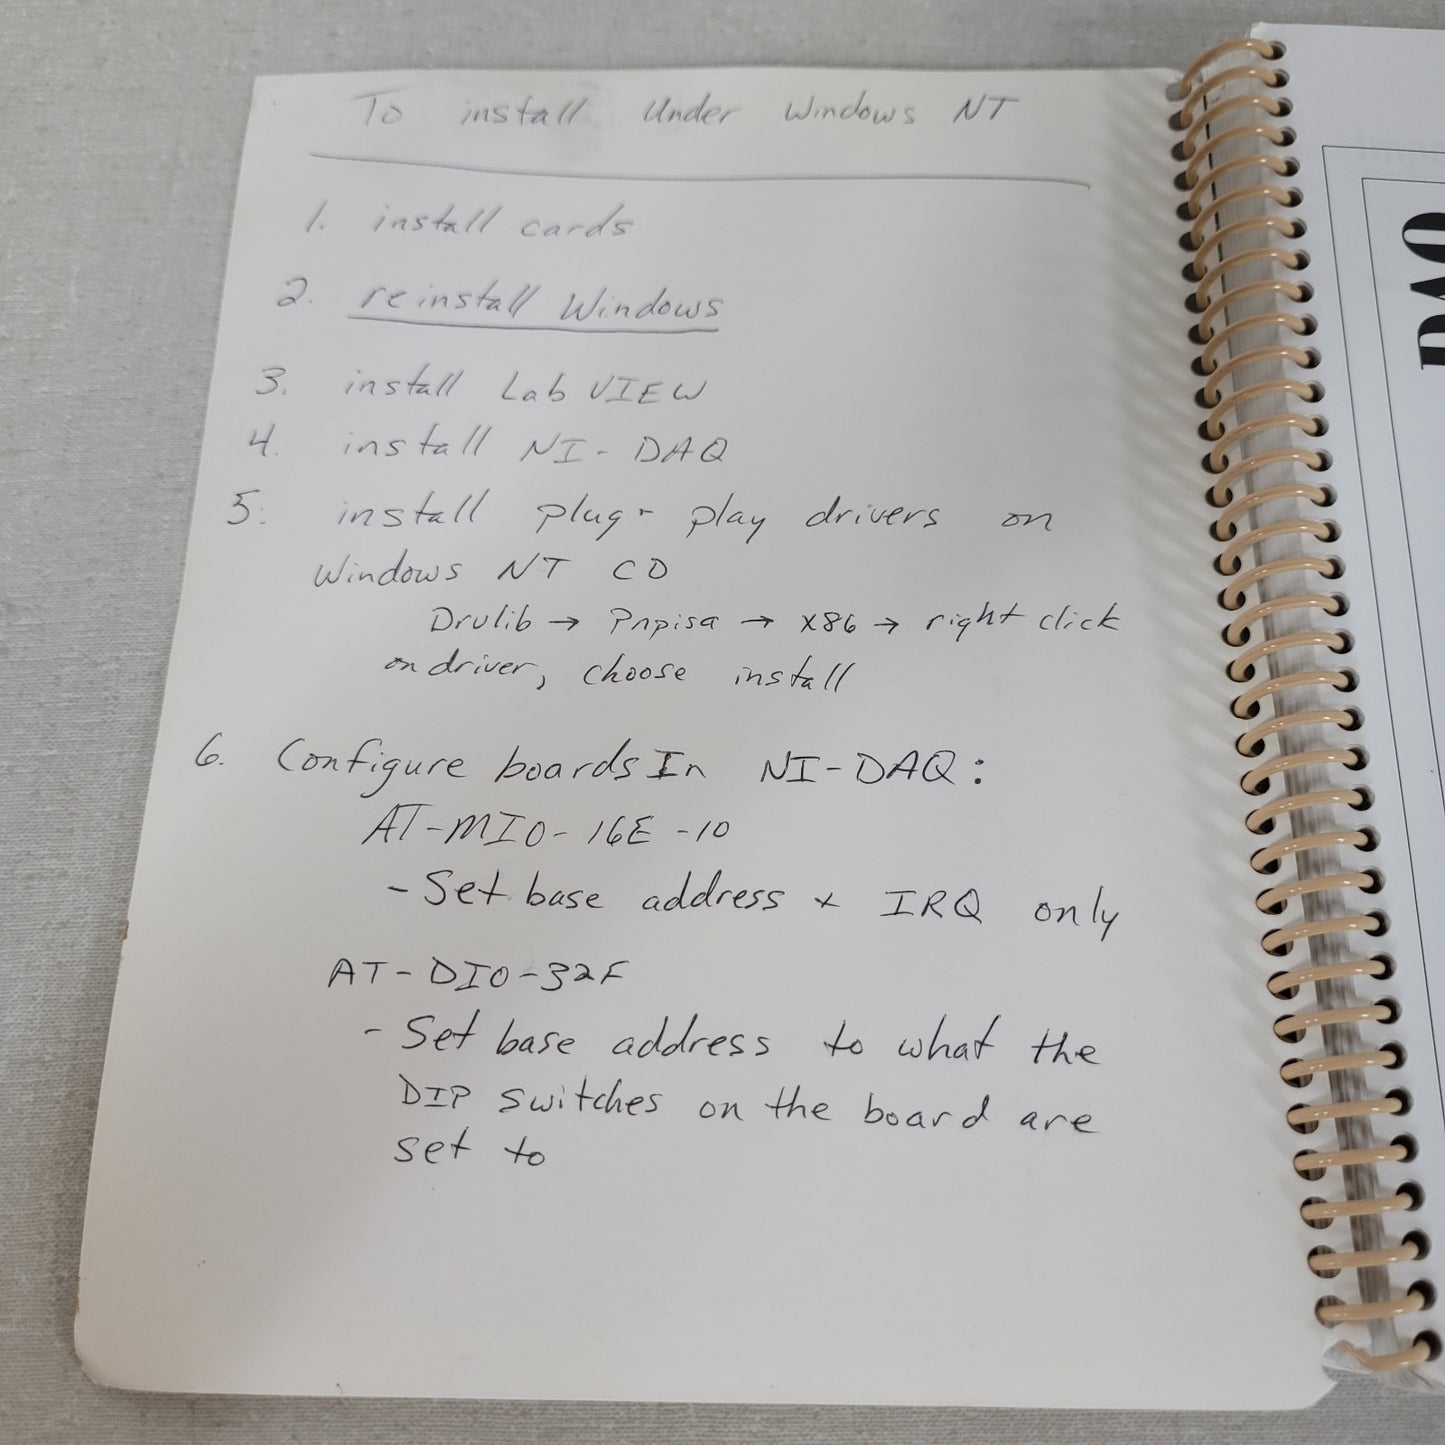 To install Under Windows NT
1. install cards
2. reinstall Windows
3. install LabVIEW
4. install NI-DAQ
5. install plug + play drivers on
Windows NT CD
Drvlib → Pnpisa → X86 → right click
on driver, choose install
6. Configure boards In NI-DAQ:
AT-MIO-16E-10
- Set base address + IRQ only
AT-DIO-32F
- Set base address to what the
DIP switches on the board are
set to
DAQ